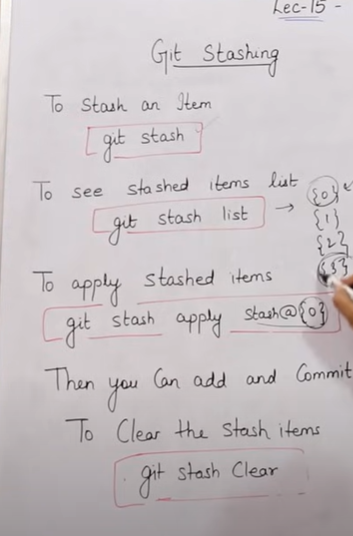 Lec-15 -
Git Stashing
To Stash an Item
git stash
To see stashed items list {0}
git stash list → {1}
{2}
{3}
To apply stashed items
git stash apply stash@{0}
Then you Can add and Commit
To Clear the Stash items
git stash Clear